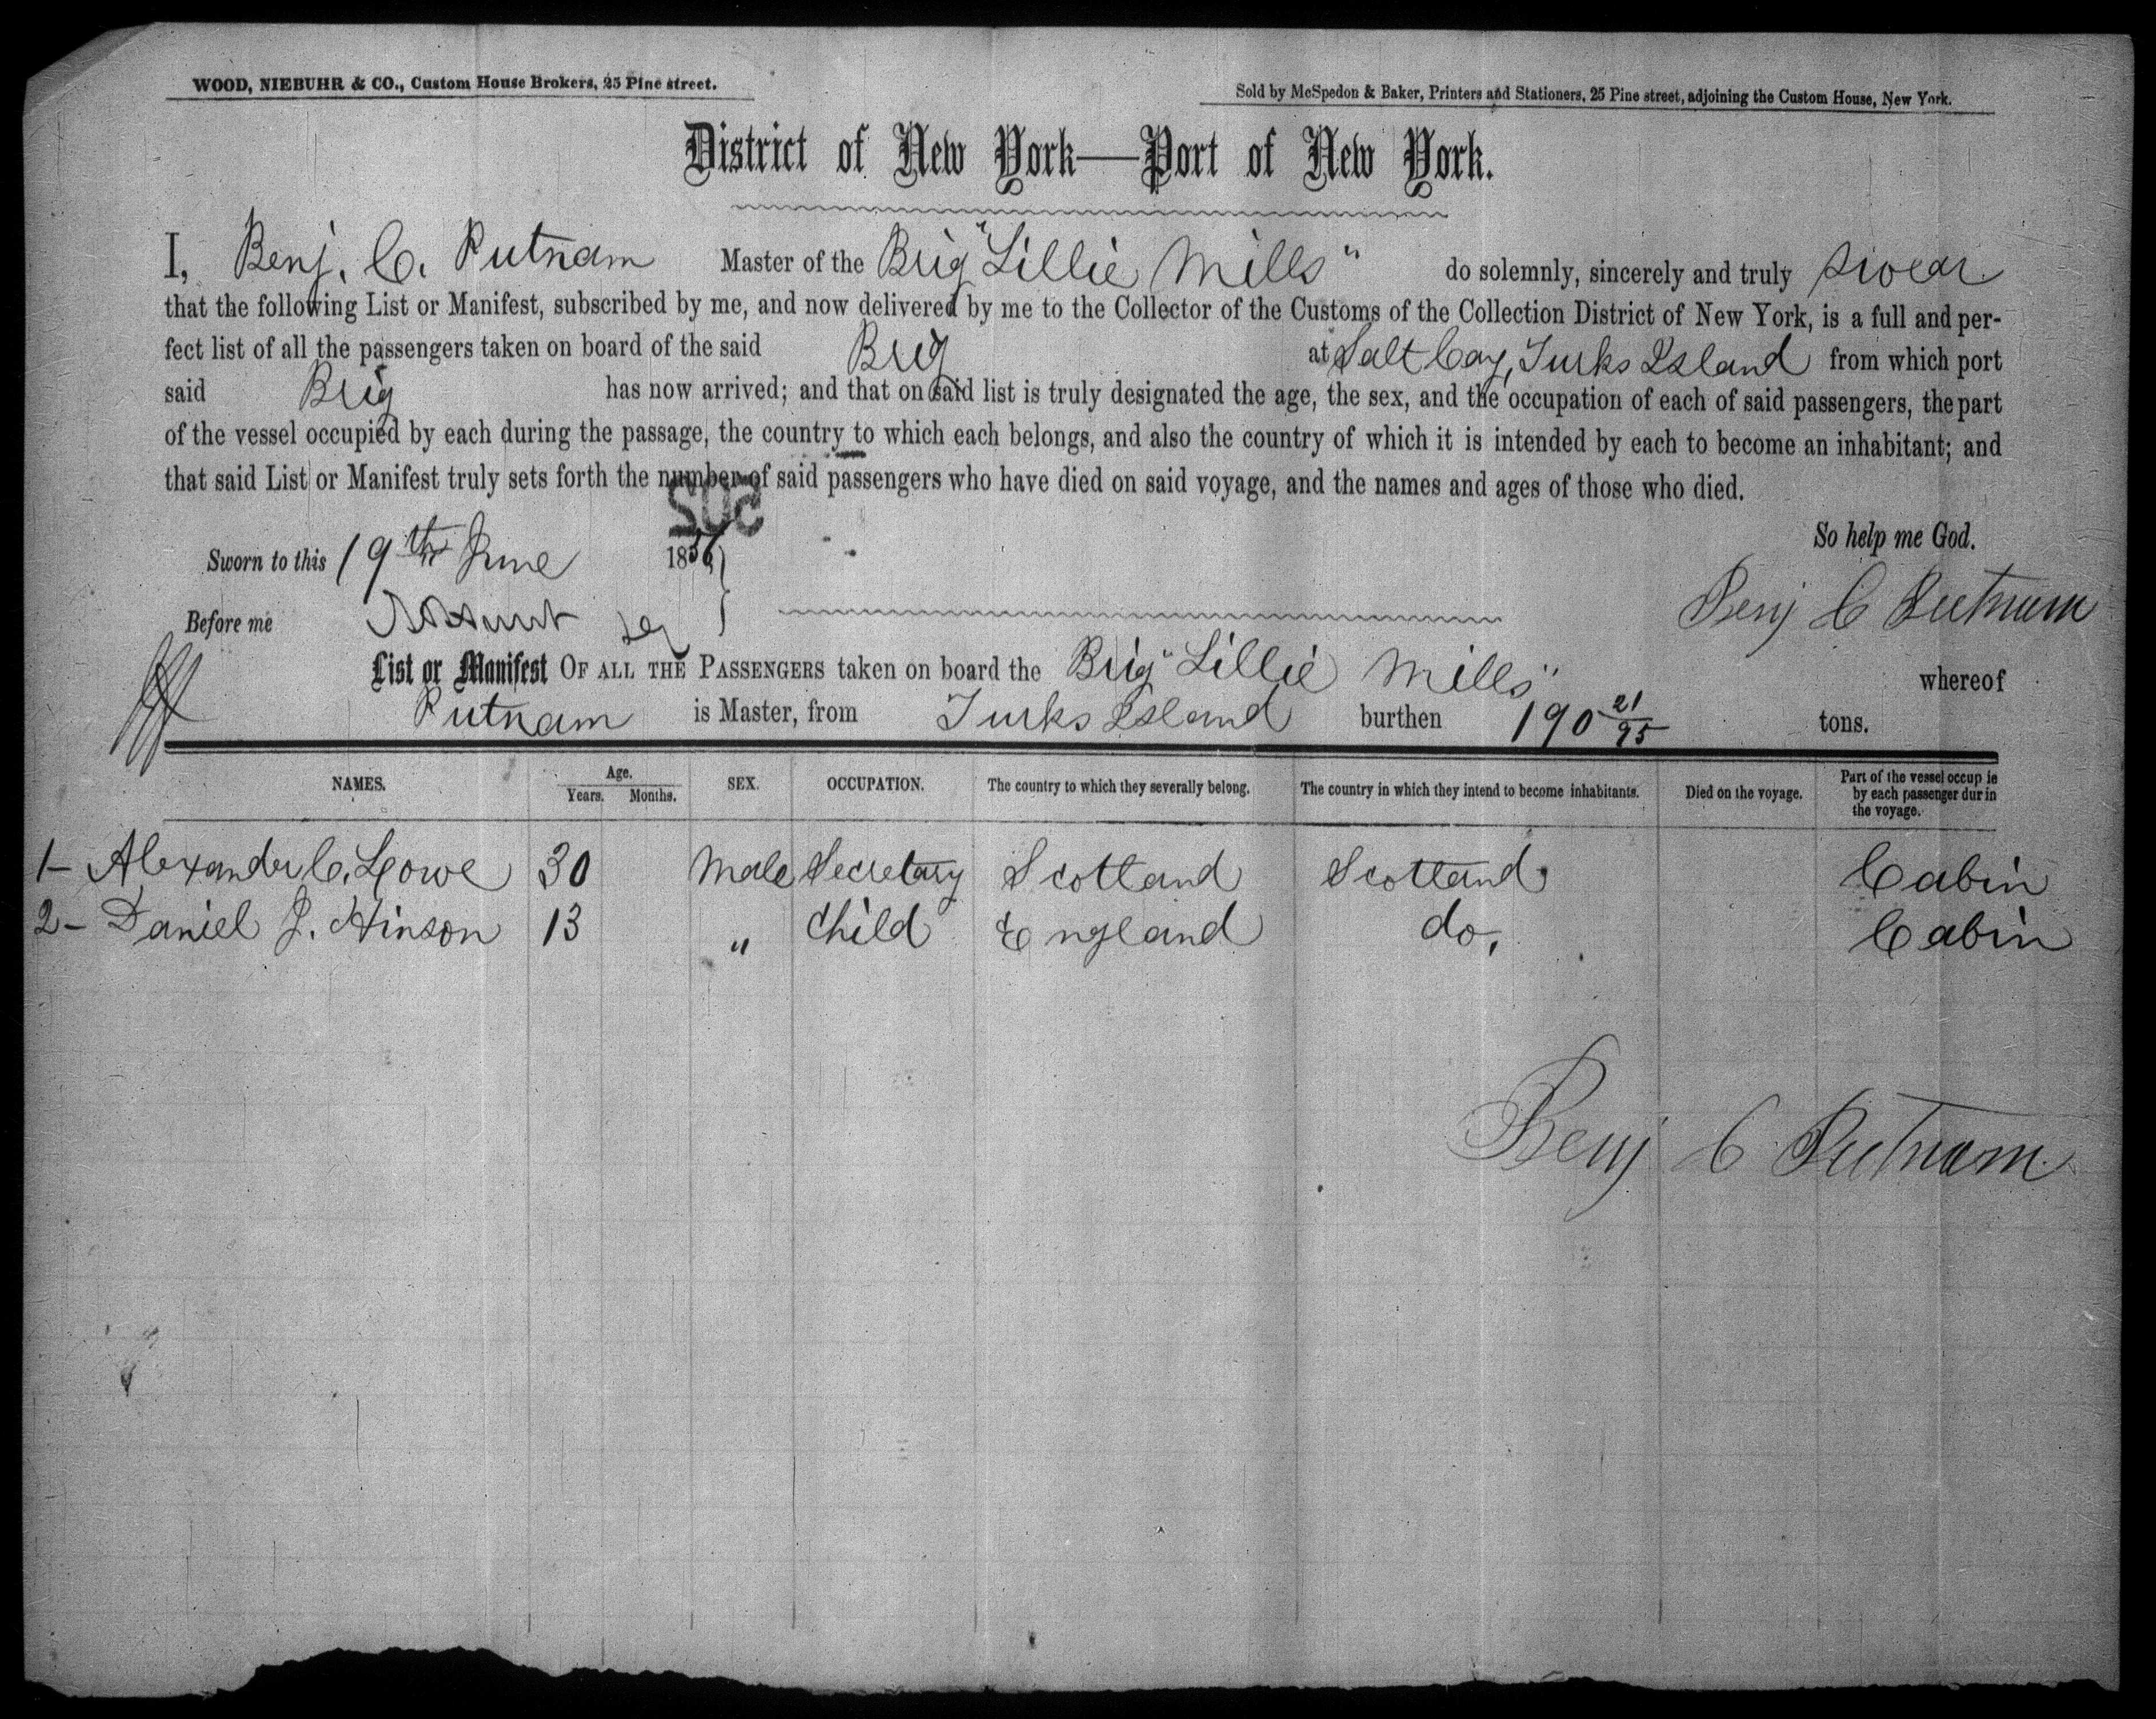 WOOD, NIEBUHR & CO., Custom House Brokers, 25 Pine street.
Sold by McSpedon & Baker, Printers and Stationers, 25 Pine street, adjoining the Custom House, New York.
District of New York—Port of New York.
I, Benj. C. Putnam Master of the Brig "Lillie Mills" do solemnly, sincerely and truly swear
that the following List or Manifest, subscribed by me, and now delivered by me to the Collector of the Customs of the Collection District of New York, is a full and per-
fect list of all the passengers taken on board of the said Brig at Salt Cay, Turks Island from which port
said Brig has now arrived; and that on said list is truly designated the age, the sex, and the occupation of each of said passengers, the part
of the vessel occupied by each during the passage, the country to which each belongs, and also the country of which it is intended by each to become an inhabitant; and
that said List or Manifest truly sets forth the number of said passengers who have died on said voyage, and the names and ages of those who died.
502
So help me God.
Sworn to this 19th June 1856
Benj C Putnam
Before me
List or Manifest OF ALL THE PASSENGERS taken on board the Brig "Lillie Mills" whereof
Putnam is Master, from Turks Island burthen 190 21/95 tons.
NAMES. Age. Years. Months. SEX. OCCUPATION. The country to which they severally belong. The country in which they intend to become inhabitants. Died on the voyage. Part of the vessel occup ie by each passenger dur in the voyage.
1- Alexander C. Lowe 30 Male Secretary Scotland Scotland Cabin
2- Daniel J. Hinson 13 " Child England do. Cabin
Benj C Putnam